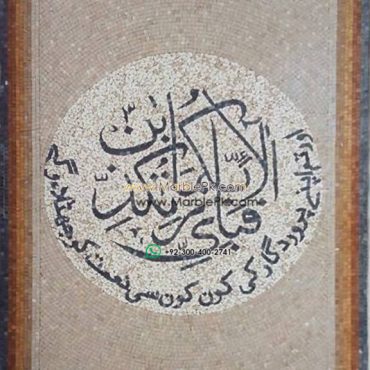 فبأيّ آلاء ربّكما تكذّبٰن
پروردگار کی کون کون سی نعمت کو جھٹلاؤ گے
www.MarblePk.com
www.MarblePk.com
+92-300-400-2741